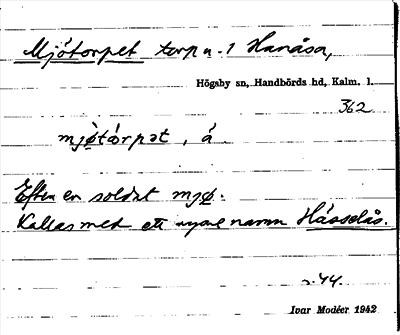 Mjötorpet torp u. 1 Hanåsa,
Högsby sn, Handbörds hd, Kalm. l.
362
mjø̀tå̀rpət, á.
Efter en soldat mjø.
Kallas med ett nyare namn Hässelås.
s. 44.
Ivar Modéer 1942